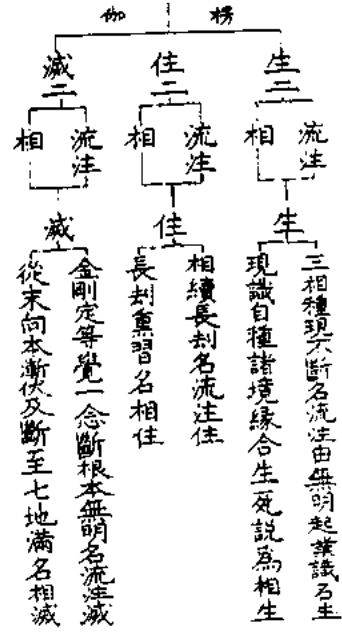 楞伽
生二
流注
相
生
三相種現不斷名流注由無明起業識名生
現識自種諸境緣合生死説為相生
住二
流注
相
住
相續長刦名流注住
長刦熏習名相住
滅二
流注
相
滅
金剛定等覺一念斷根本無明名流注滅
從末向本漸伏及斷至七地滿名相滅